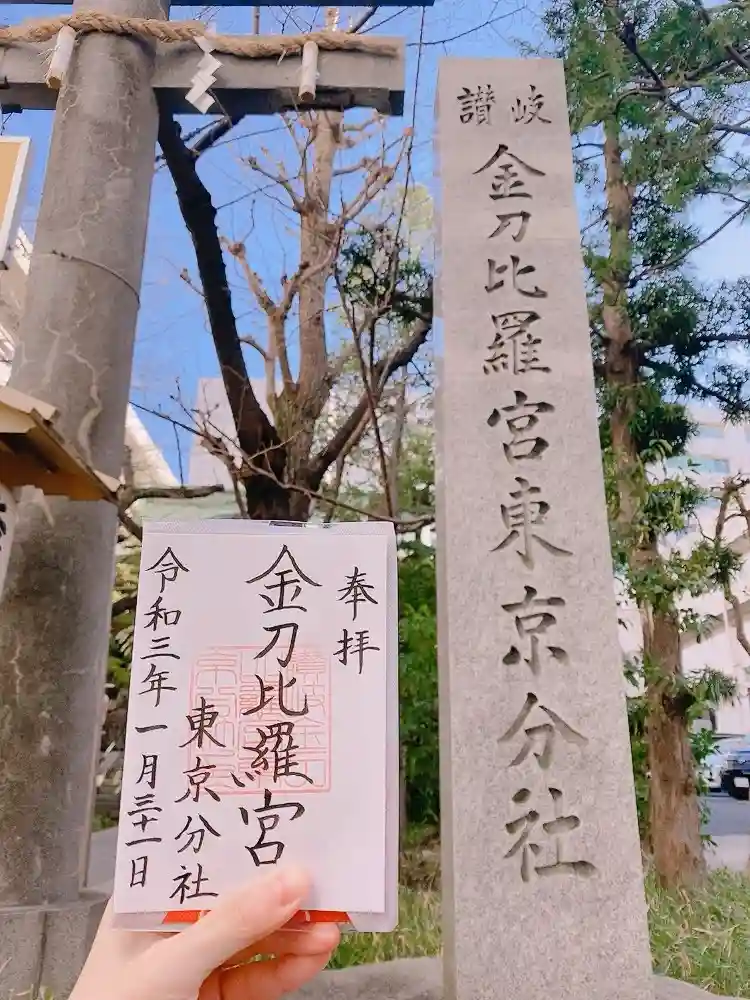 讃岐
金刀比羅宮東京分社
奉拝
金刀比羅宮
東京分社
令和三年一月三十一日